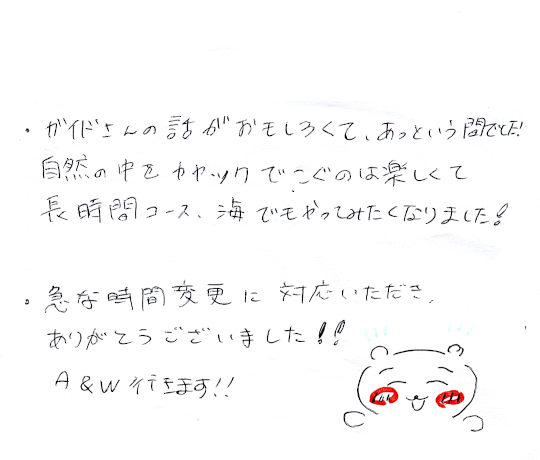 ・ガイドさんの話がおもしろくて、あっという間でした!
自然の中をカヤックでこぐのは楽しくて
長時間コース、海でもやってみたくなりました!
・急な時間変更に対応いただき、
ありがとうございました!!
A&W行きます!!